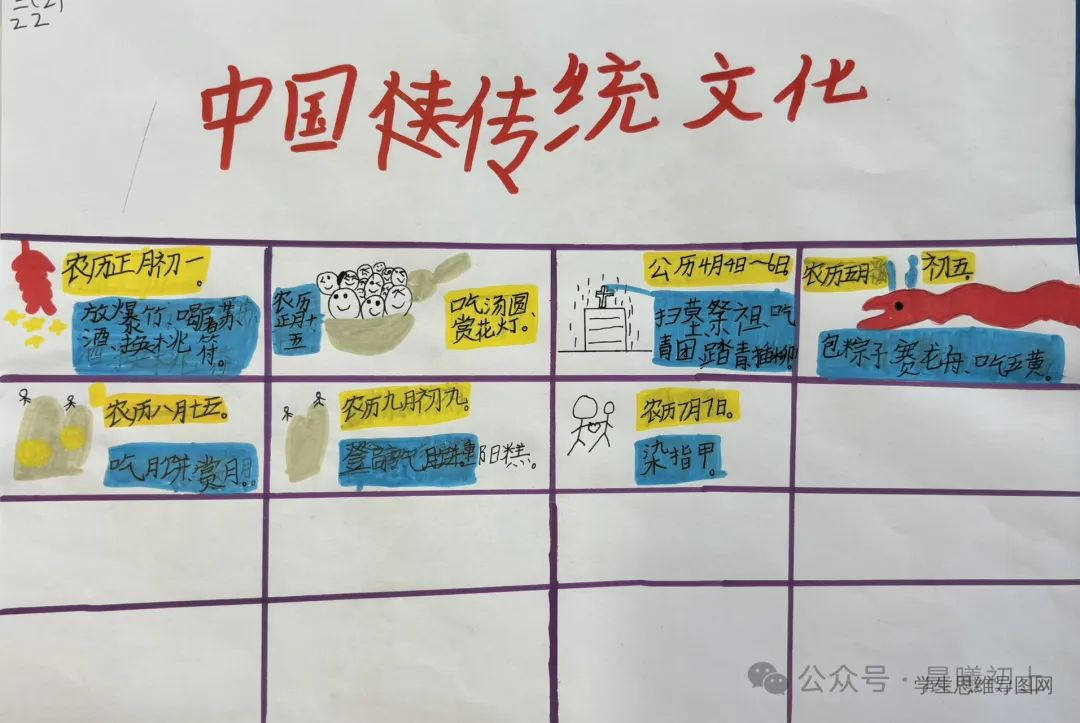 三(2)
22
中国传统文化
农历正月初一
放爆竹、喝屠苏
酒、换桃符。
农历
正月十
五
吃汤圆、
赏花灯。
公历4月4日~6日
扫墓祭祖、吃
青团、踏青插柳
农历五月初五。
包粽子赛龙舟、吃五黄。
农历八月十五。
吃月饼赏月。
农历九月初九。
登高吃重阳糕。
农历7月7日。
染指甲。
公众号·晨曦初上
学生思维导图网